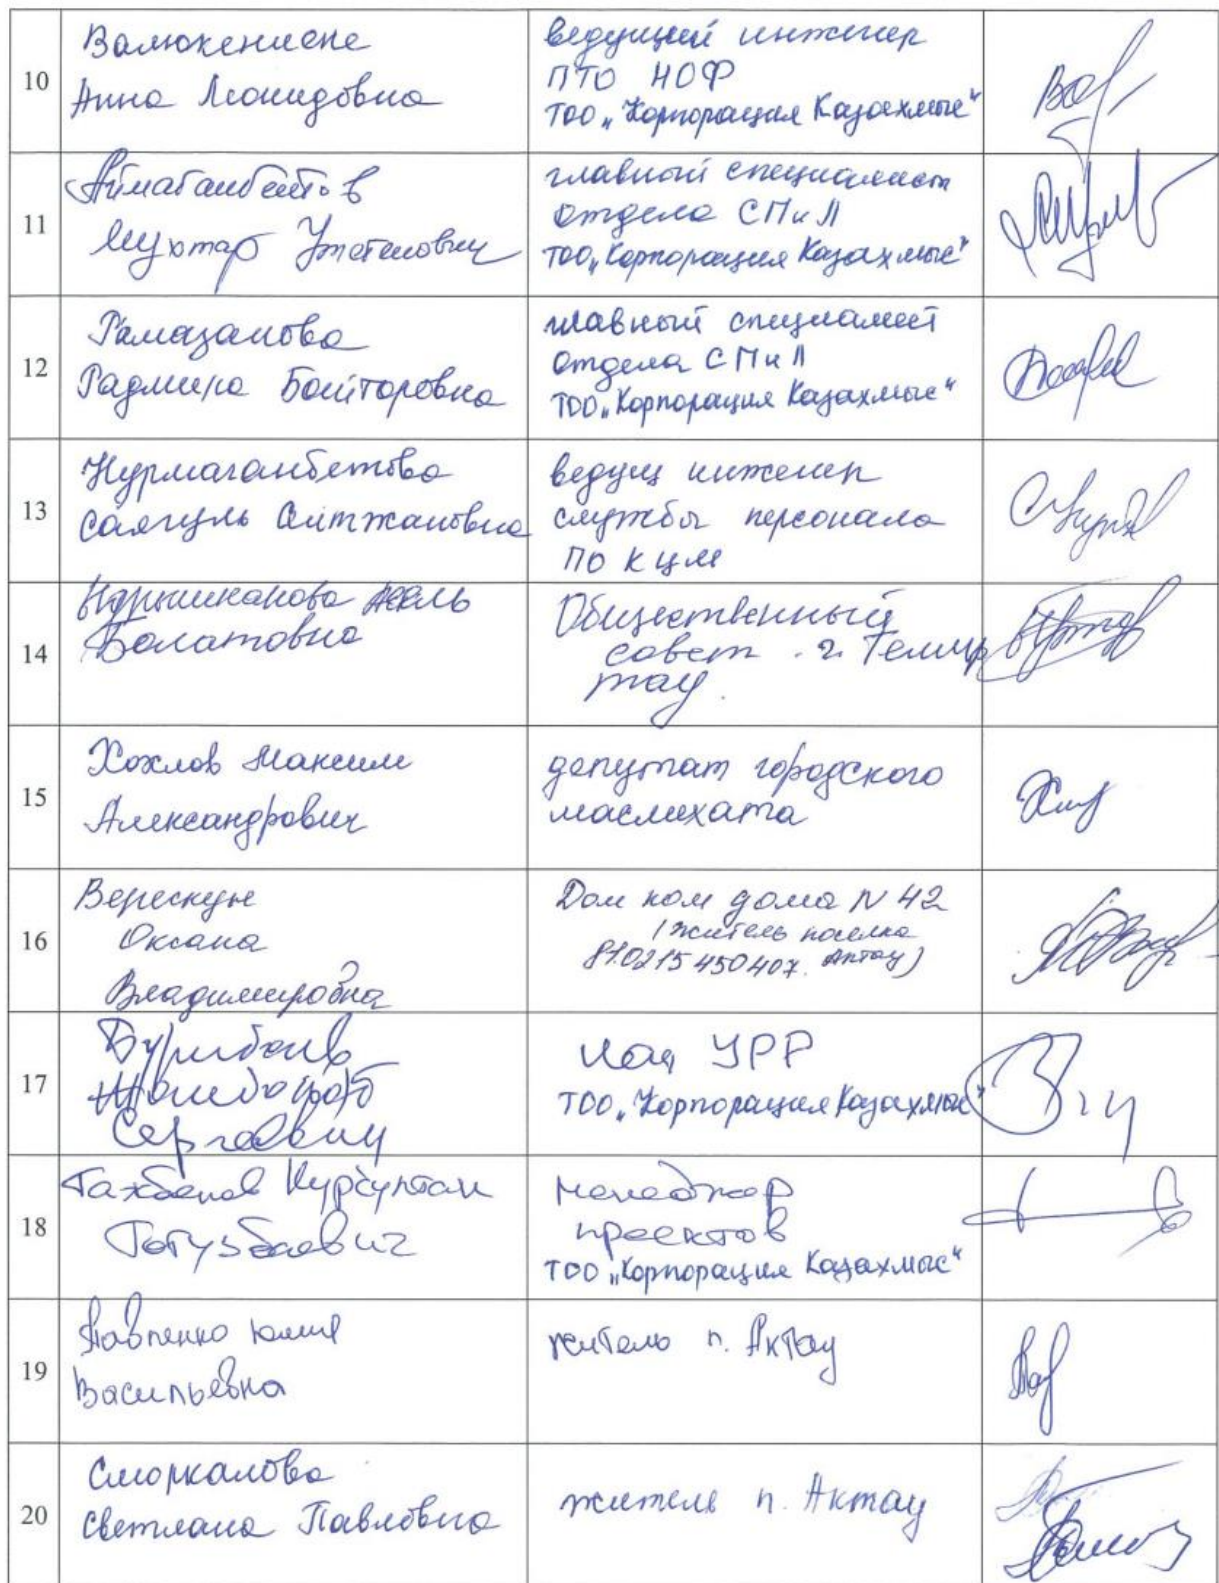 10
Валюкениене
Анна Леонидовна
ведущий инженер
ПТО НОФ
ТОО „Корпорация Казахмыс“
11
Аймаганбетов
Мухтар
главный специалист
отдела СПиЛ
ТОО „Корпорация Казахмыс“
12
Рамазанова
Радмила
главный специалист
отдела СПиЛ
ТОО „Корпорация Казахмыс“
13
Нурмаганбетова
Саягуль
ведущ инженер
службы персонала
ПО КЦМ
14
Асель
Болатовна
Общественный
совет г. Темир
тау.
15
Хохлов Максим
Александрович
депутат городского
маслихата
16
Верескун
Оксана
Владимировна
Дом ком дома N 42
(житель поселка
810215450407. Актау)
17
Сергеевич
УРР
ТОО „Корпорация Казахмыс“
18
Нурсултан
менеджер
проектов
ТОО „Корпорация Казахмыс“
19
Павленко Юлия
Васильевна
житель п. Актау
20
Сморкалова
Светлана Павловна
житель п. Актау